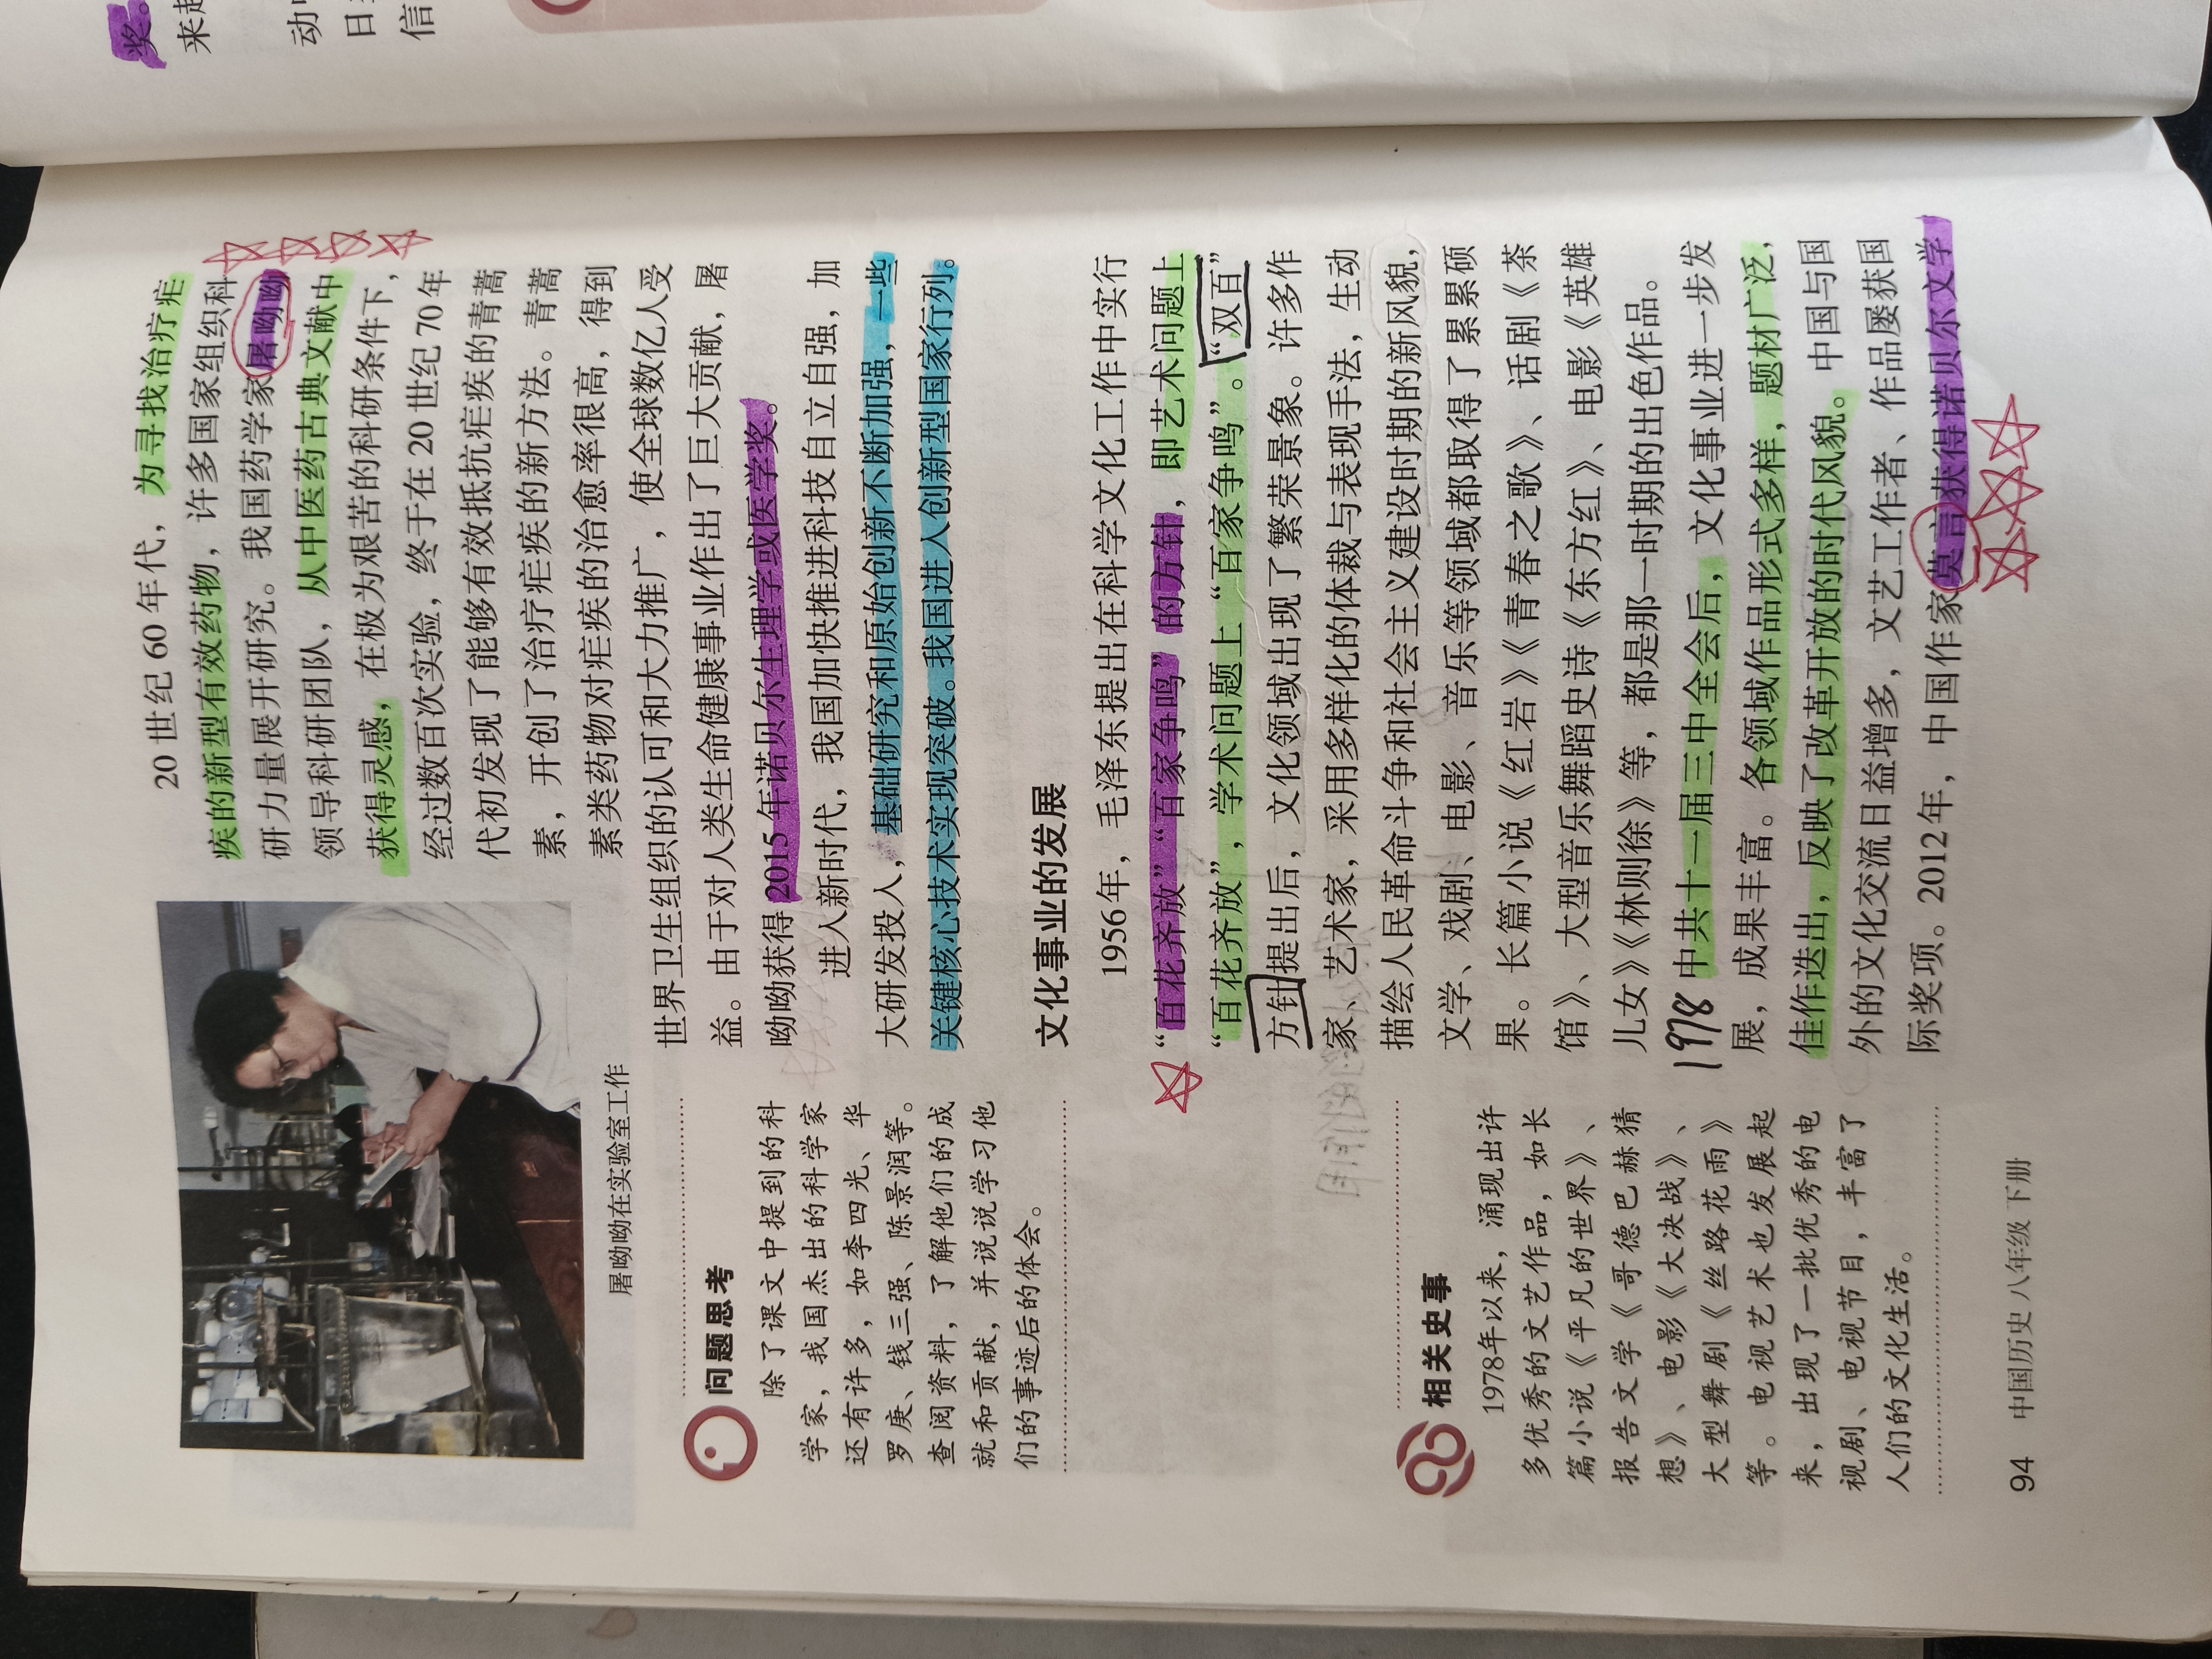 奖。
来起
动中
信
20世纪60年代，为寻找治疗疟
疾的新型有效药物，许多国家组织科
研力量展开研究。我国药学家屠呦呦
领导科研团队，从中医药古典文献中
获得灵感，在极为艰苦的科研条件下，
经过数百次实验，终于在20世纪70年
代初发现了能够有效抵抗疟疾的青蒿
素，开创了治疗疟疾的新方法。青蒿
素类药物对疟疾的治愈率很高，得到
世界卫生组织的认可和大力推广，使全球数亿人受
益。由于对人类生命健康事业作出了巨大贡献，屠
呦呦获得2015年诺贝尔生理学或医学奖。
进入新时代，我国加快推进科技自立自强，加
大研发投入，基础研究和原始创新不断加强，一些
关键核心技术实现突破。我国进入创新型国家行列。
文化事业的发展
1956年，毛泽东提出在科学文化工作中实行
“百花齐放”“百家争鸣”的方针，即艺术问题上
“百花齐放”，学术问题上“百家争鸣”。“双百”
方针提出后，文化领域出现了繁荣景象。许多作
家、艺术家，采用多样化的体裁与表现手法，生动
描绘人民革命斗争和社会主义建设时期的新风貌，
文学、戏剧、电影、音乐等领域都取得了累累硕
果。长篇小说《红岩》《青春之歌》、话剧《茶
馆》、大型音乐舞蹈史诗《东方红》、电影《英雄
儿女》《林则徐》等，都是那一时期的出色作品。
1978
中共十一届三中全会后，文化事业进一步发
展，成果丰富。各领域作品形式多样，题材广泛，
佳作迭出，反映了改革开放的时代风貌。中国与国
外的文化交流日益增多，文艺工作者、作品屡获国
际奖项。2012年，中国作家莫言获得诺贝尔文学
屠呦呦在实验室工作
问题思考
除了课文中提到的科
学家，我国杰出的科学家
还有许多，如李四光、华
罗庚、钱三强、陈景润等。
查阅资料，了解他们的成
就和贡献，并说说学习他
们的事迹后的体会。
相关史事
1978年以来，涌现出许
多优秀的文艺作品，如长
篇小说《平凡的世界》、
报告文学《哥德巴赫猜
想》、电影《大决战》、
大型舞剧《丝路花雨》
等。电视艺术也发展起
来，出现了一批优秀的电
视剧、电视节目，丰富了
人们的文化生活。
94 中国历史 八年级 下册